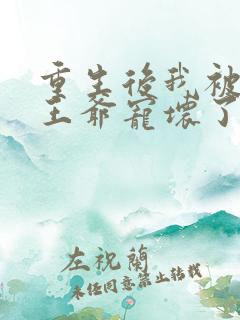 重生後我被
王爺寵壞了
左祝蘭
未经同意禁止转载